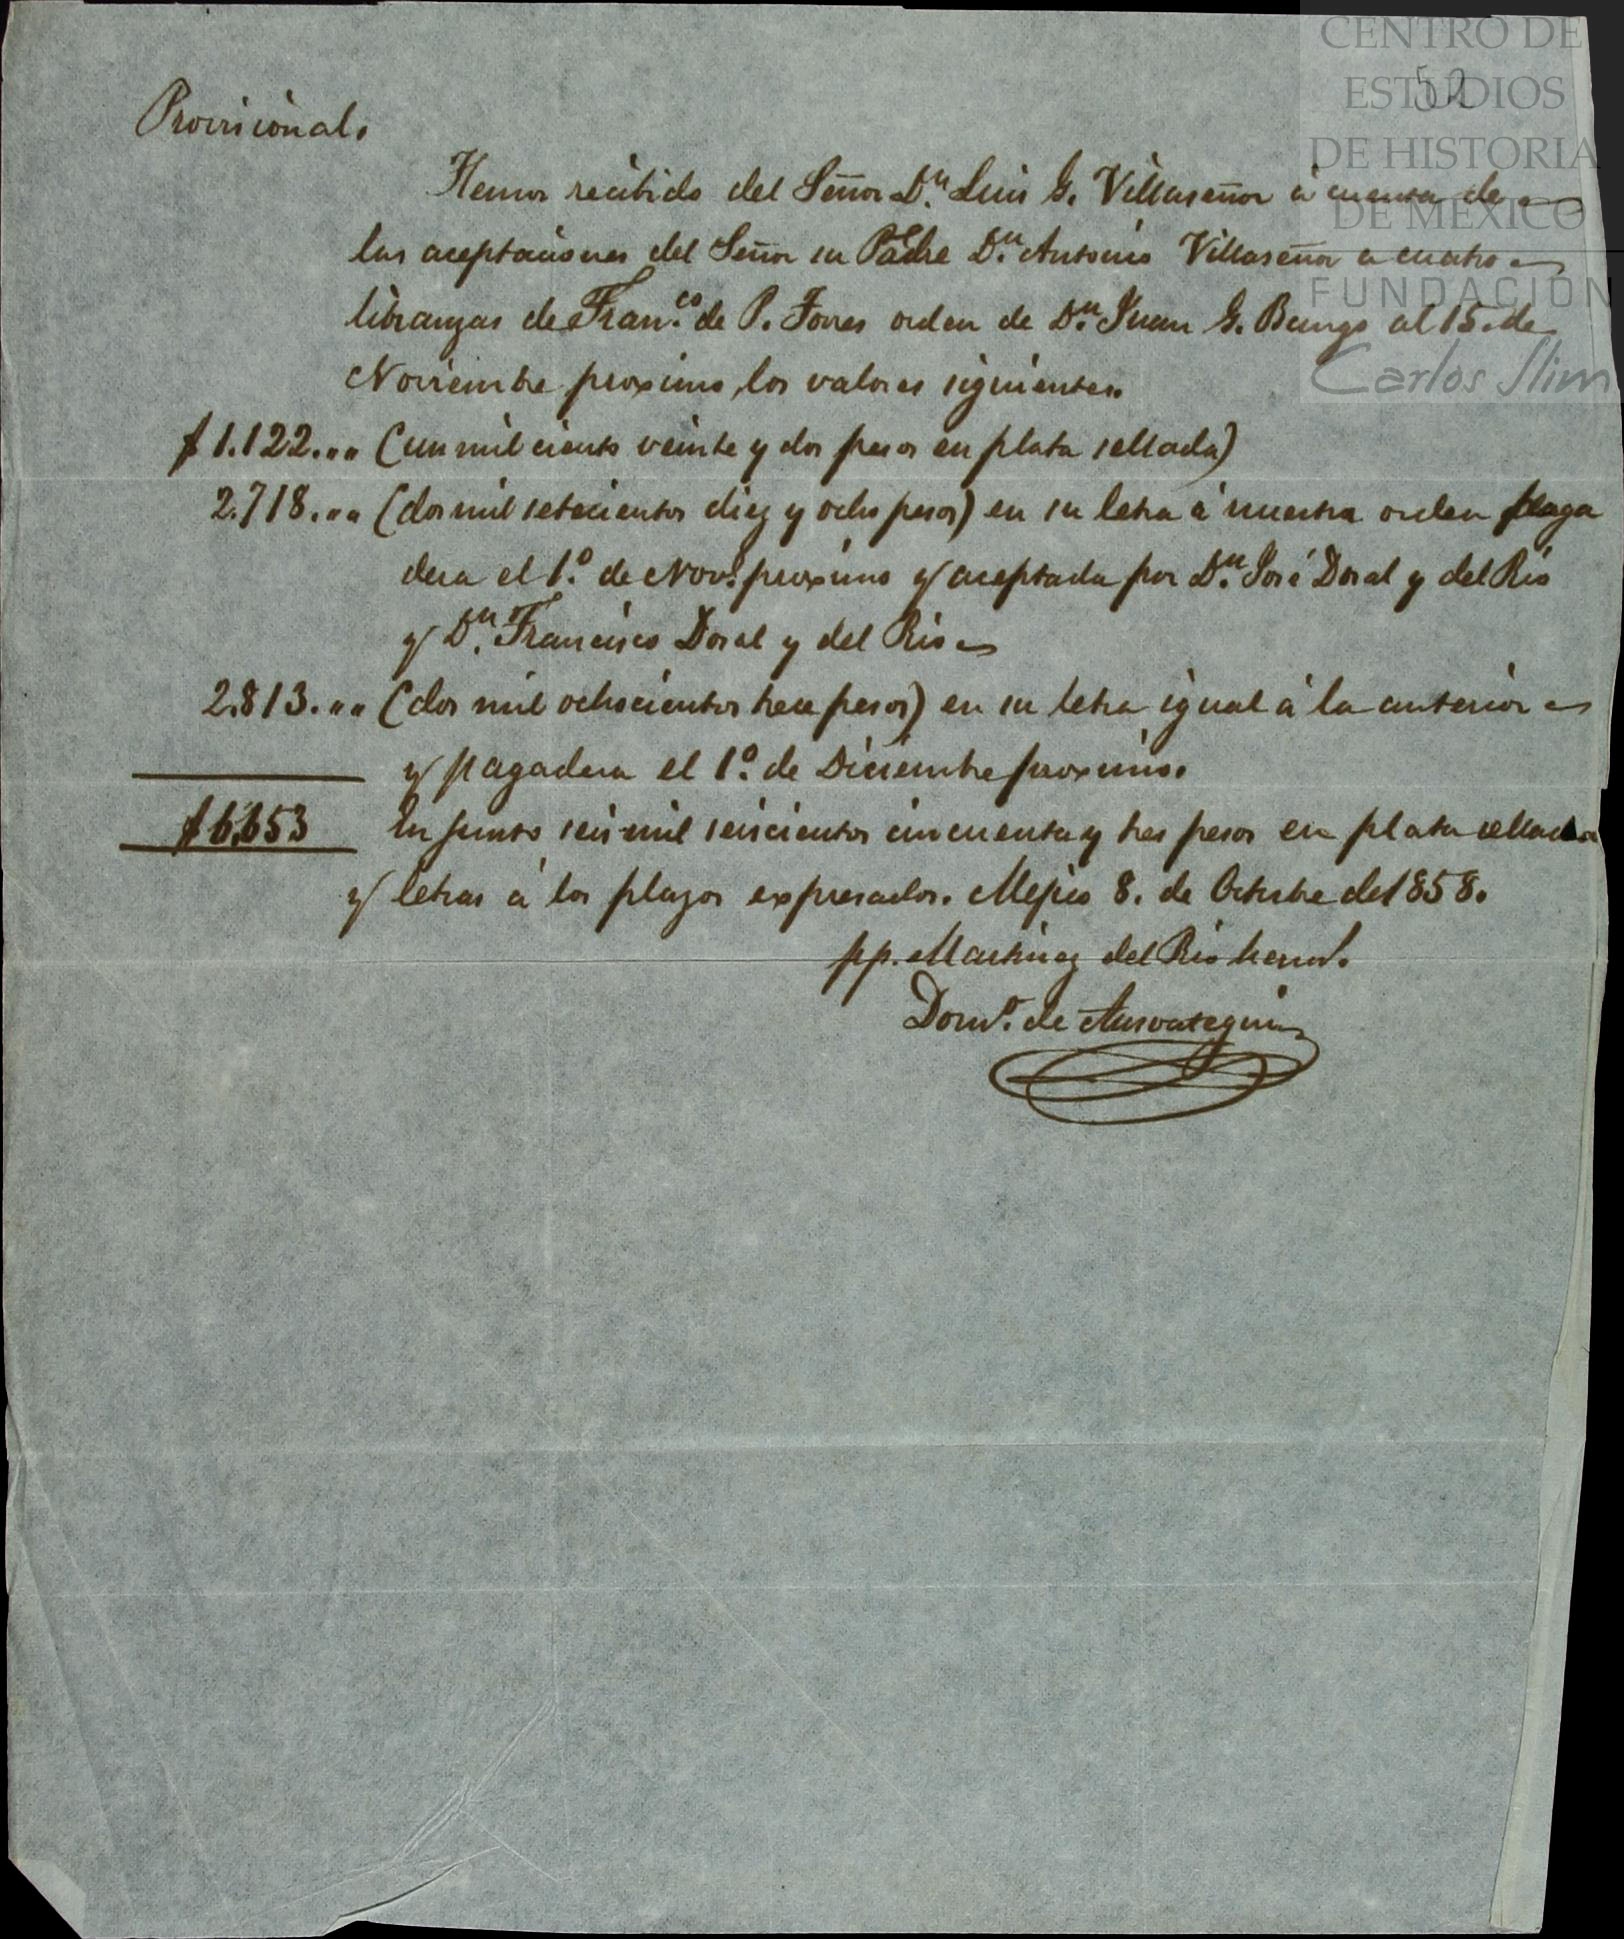 CENTRO DE
ESTUDIOS
DE HISTORIA
DE MÉXICO
FUNDACIÓN
Carlos Slim
52
Provisional.
Hemos recibido del Señor Dn. Luis G. Villaseñor á cuenta de
las aceptaciones del Señor su Padre Dn. Antonio Villaseñor a cuatro
libranzas de Franco. de P. Torres orden de Dn. Juan G. al 15. de
Noviembre proximo, los valores siguientes.
$ 1.122... (un mil ciento veinte y dos pesos en plata sellada)
2.718... (dos mil setecientos diez y ocho pesos) en su letra á nuestra orden paga
dera el 1º. de Nove. proximo y aceptada por Dn. José Doral y del Rio
y Dn. Francisco Doral y del Rio
2.813... (dos mil ochocientos trece pesos) en su letra igual á la anterior
y pagadera el 1º. de Diciembre proximo.
$ 6.653 En junto seis mil seiscientos cincuenta y tres pesos en plata sellada
y letras á los plazos expresados. Mejico 8. de Octubre de 1858.
pp. Martinez del Rio herms.
Domo. de Ansoategui